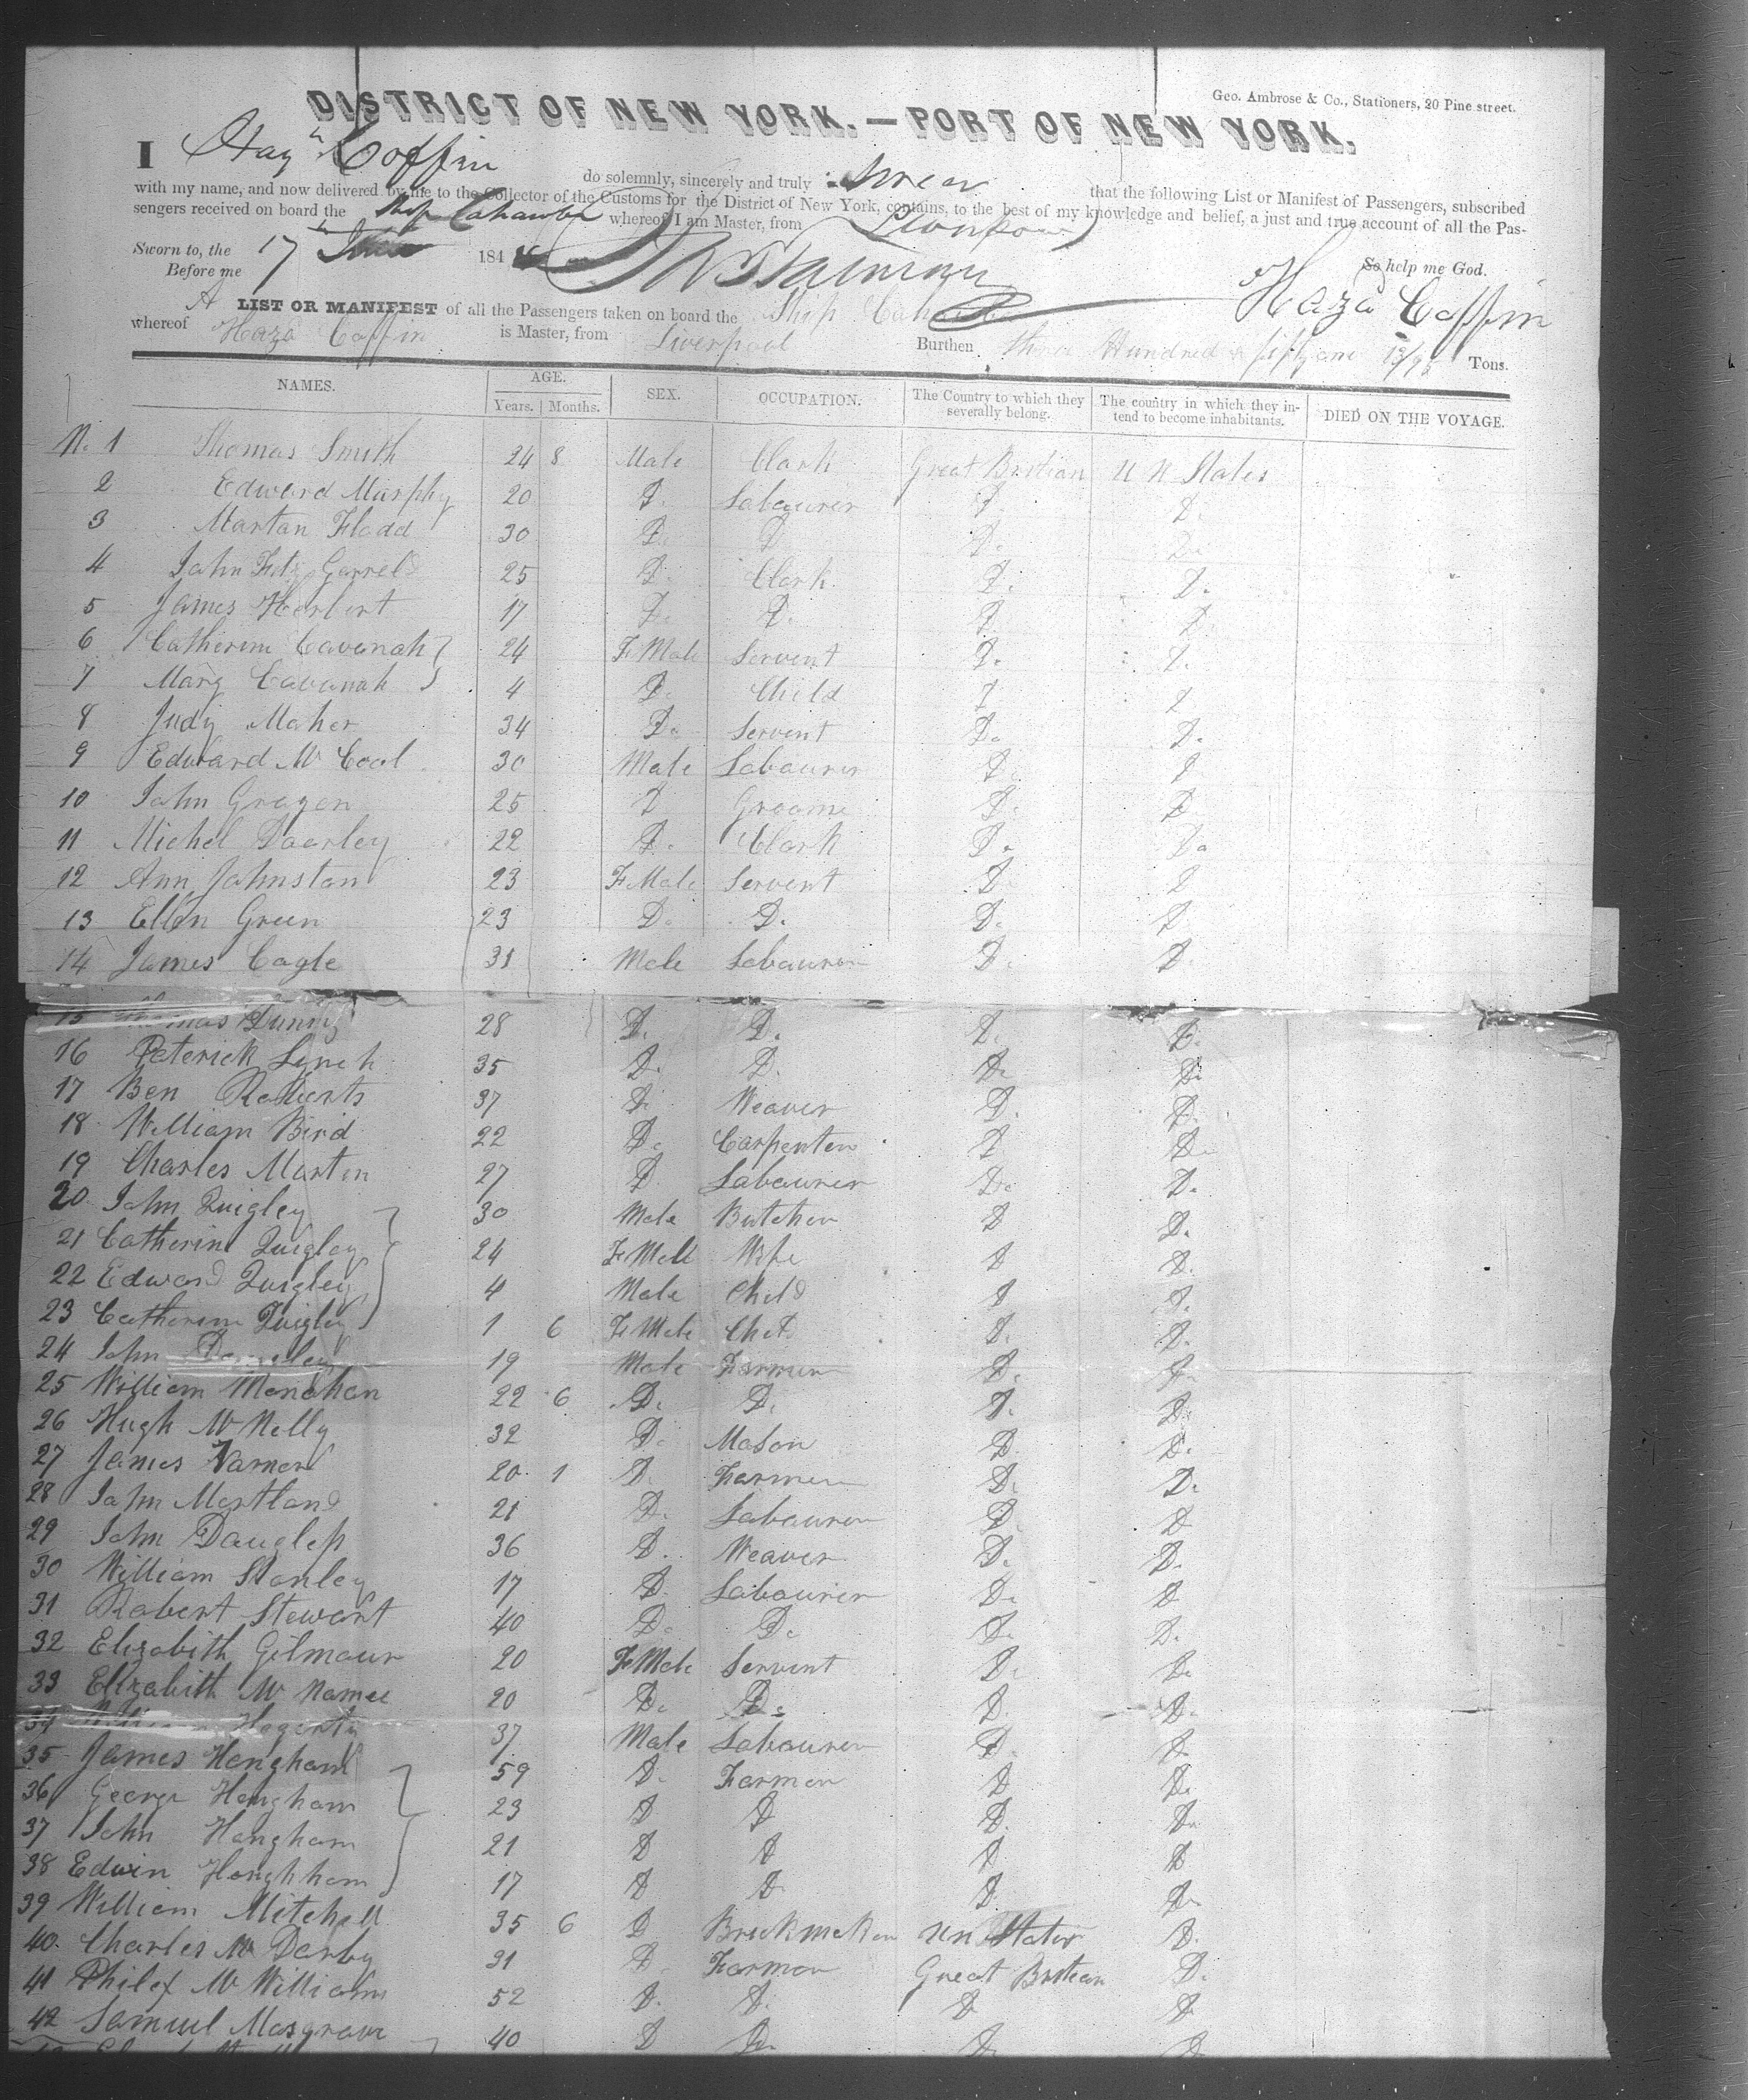 Geo. Ambrose & Co., Stationers, 20 Pine street.
DISTRICT OF NEW YORK.—PORT OF NEW YORK.
I Coffin do solemnly, sincerely and truly swear that the following List or Manifest of Passengers, subscribed
with my name, and now delivered by me to the Collector of the Customs for the District of New York, contains, to the best of my knowledge and belief, a just and true account of all the Pas-
sengers received on board the Ship Cahawba whereof I am Master, from Liverpool
Sworn to, the 17 184 So help me God.
Before me Coffin
A LIST OR MANIFEST of all the Passengers taken on board the Ship
whereof Coffin is Master, from Liverpool Burthen three Hundred & fifty one Tons.
NAMES. AGE. SEX. OCCUPATION. The Country to which they severally belong. The country in which they intend to become inhabitants. DIED ON THE VOYAGE.
Years. Months.
No. 1 Thomas Smith 24 8 Male Clark Great Britian U N States
2 Edward Murphy 20 D. Labaurer D. D.
3 Martan Flood 30 D. D. D. Do
4 John Fitz Garreld 25 D. Clark D. D.
5 James Herbert 17 D. D. D. D.
6 Catherine Cavanah 24 F Male Servent D. D.
7 Mary Cavanah 4 D. Child D D
8 Judy Maher 34 Do Servent Do D.
9 Edward Mc Cool 30 Male Labaurer D. D
10 John Grogen 25 D Groome D. D
11 Michel Doorley 22 D. Clark Do Do
12 Ann Johnston 23 F Male Servent D. D
13 Ellen Green 23 D. D. D. D.
14 James Cagle 31 Male Labaurer D. D.
15 Thomas 28 D. D. D. D.
16 Paterick Lynch 35 D. D. D. D.
17 Ben Roberts 37 D. Weaver D. D.
18 William Bird 22 Do Carpenter D Do
19 Charles Martin 27 D. Labaurer Do D.
20 John Quigley 30 Male Butcher D D.
21 Catherine Quigley 24 F Male Wife D D.
22 Edward Quigley 4 Male Child D D.
23 Catherine Quigley 1 6 F Male Child D. D.
24 John 19 Male Farmer D. D.
25 William Monahan 22 6 D. D. D. D.
26 Hugh Mc Nelly 32 D. Mason D. D.
27 James 20 1 D. Farmer D. D.
28 John Martland 21 D. Labaurer D. D
29 John Dauglass 36 D. Weaver D. D.
30 William Stanley 17 D. Labaurer D. D
31 Robert Stewart 40 Do Do D. D.
32 Elizabith Gilmaur 20 F Male Servent D. Do
33 Elizabith Mc Namee 20 Do Do D. D.
34 Hagerty 37 Male Labaurer D. D.
35 James Hangham 59 D. Farmer D Do
36 George Hangham 23 D D D. Do
37 John Hangham 21 D D D. D
38 Edwin Hanghham 17 D D. D. Do
39 William Mitchell 35 6 D Brickmaker Un States D.
40 Charles Mc Darby 31 D. Farmer Great Britian D.
41 Mc William 52 D. D. D D.
42 Samuel Masgrave 40 D Do D. D